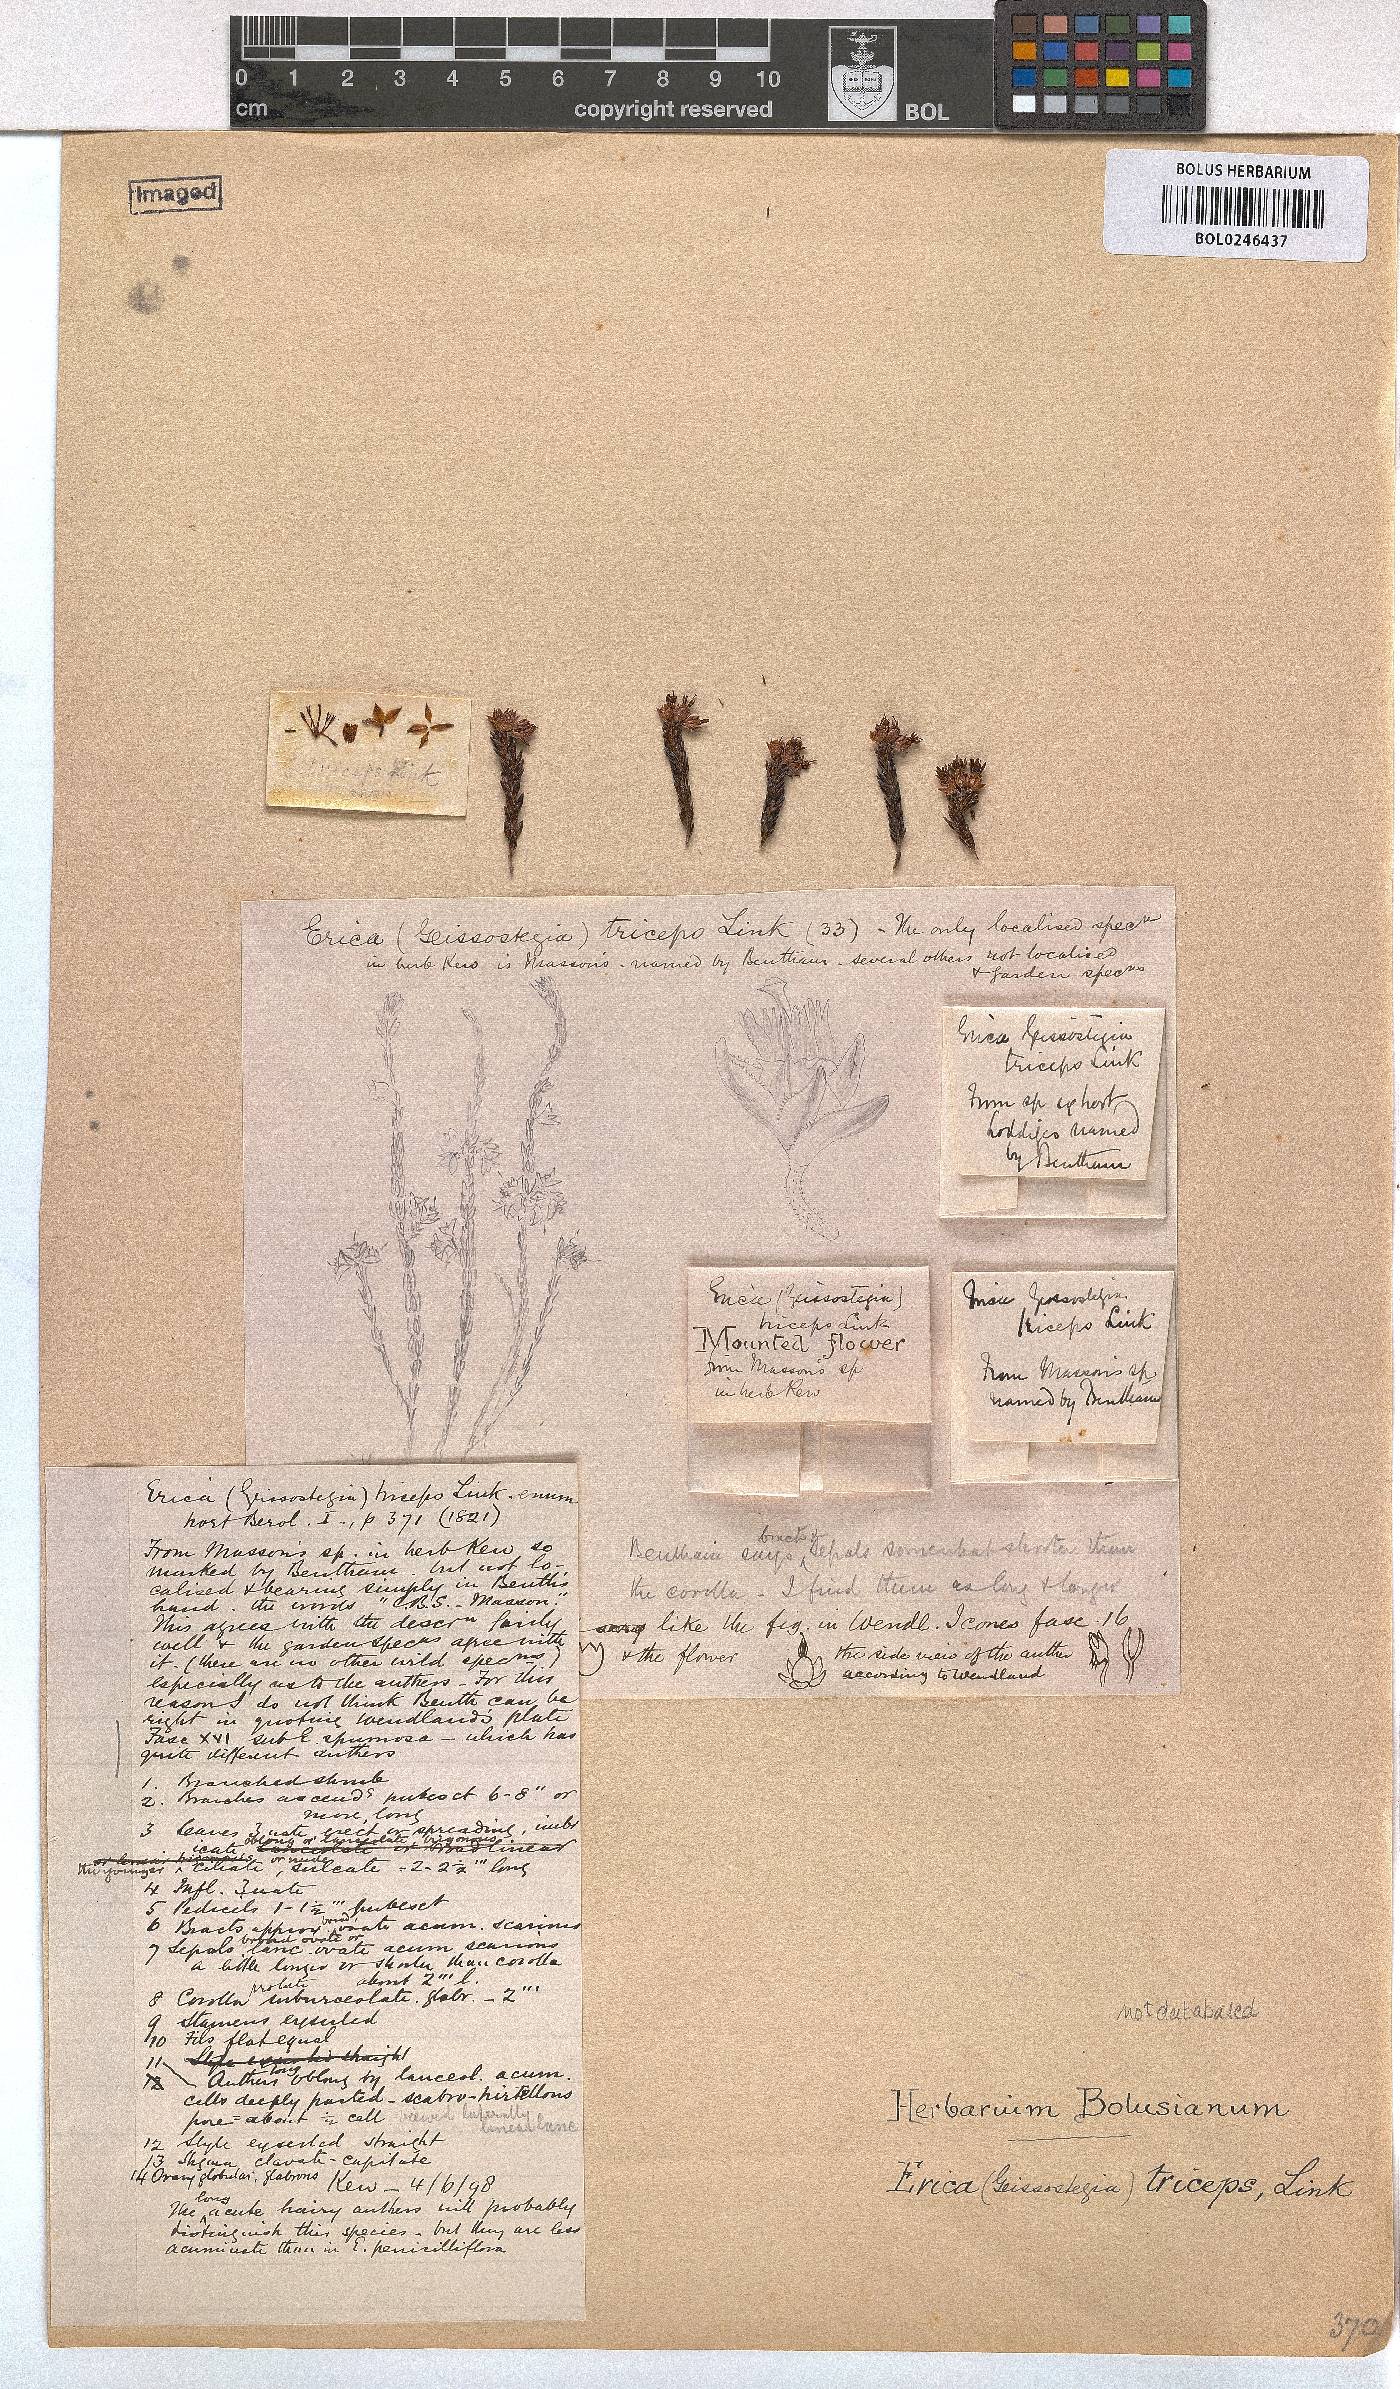 0 1 2 3 4 5 6 7 8 9 10
cm
copyright reserved
BOL
Imaged
BOLUS HERBARIUM
BOL0246437
triceps Link
Erica (Geissostegia) triceps Link (33) - the only localised specn
in herb Kew is Masson's - named by Bentham - several others not localised
& garden specns
Erica Geissostegia
triceps Link
From sp ex hort
Loddiges named
by Bentham
Erica (Geissostegia)
triceps Link
Mounted flower
from Masson's sp
in herb Kew
Erica Geissostegia
triceps Link
From Masson's sp
named by Bentham
bracts &
Bentham says sepals somewhat shorter than
the corolla - I find them as long & longer
very like the fig. in Wendl. Icones fasc. 16
& the flower
the side view of the anther
according to Wendland
Erica (Geissostegia) triceps Link - enum
hort Berol. I -, p 371 (1821)
From Masson's sp. in herb Kew so
marked by Bentham - but not lo-
calised & bearing simply in Benth's
hand - the words "C.B.S. - Masson."
This agrees with the descrn fairly
well & the garden specns agree with
it - (there are no other wild specns)
especially as to the anthers - For this
reason I do not think Benth can be
right in quoting Wendland's plate
Fasc XVI sub E. spumosa - which has
quite different anthers
1. Branched shrub
2. Branches ascendg pubesct 6-8" or
more, long
3 Leaves 3 nate erect or spreading, imbr
oblong or lanceolate, trigonous
icate lanceolate or broad linear
or nude
the younger ciliate, sulcate - 2-2½''' long
4 Infl. 3 nate
5 Pedicels 1-1½''' pubesct
broad
6 Bracts approx ovate acum. scarious
broad ovate or
7 Sepals lanc. ovate acum scarious
a little longer or shorter than corolla
about 2''' l.
8 Corolla suburceolate. glabr. - 2'''
9 Stamens exserted
10 Fils flat equal
11 Style exserted straight
long
12 Anthers oblong by lanceol. acum.
cells deeply parted - scabro-hirtellous
pore = about ½ cell viewed laterally
linear lanc
12 Style exserted straight
13 Stigma clavate-capitate
14 Ovary globular, glabrous
Kew - 4/6/98
long
The acute hairy anthers will probably
distinguish this species - but they are less
acuminate than in E. penicilliflora
not databased
Herbarium Bolusianum
Erica (Geissostegia) triceps, Link
370